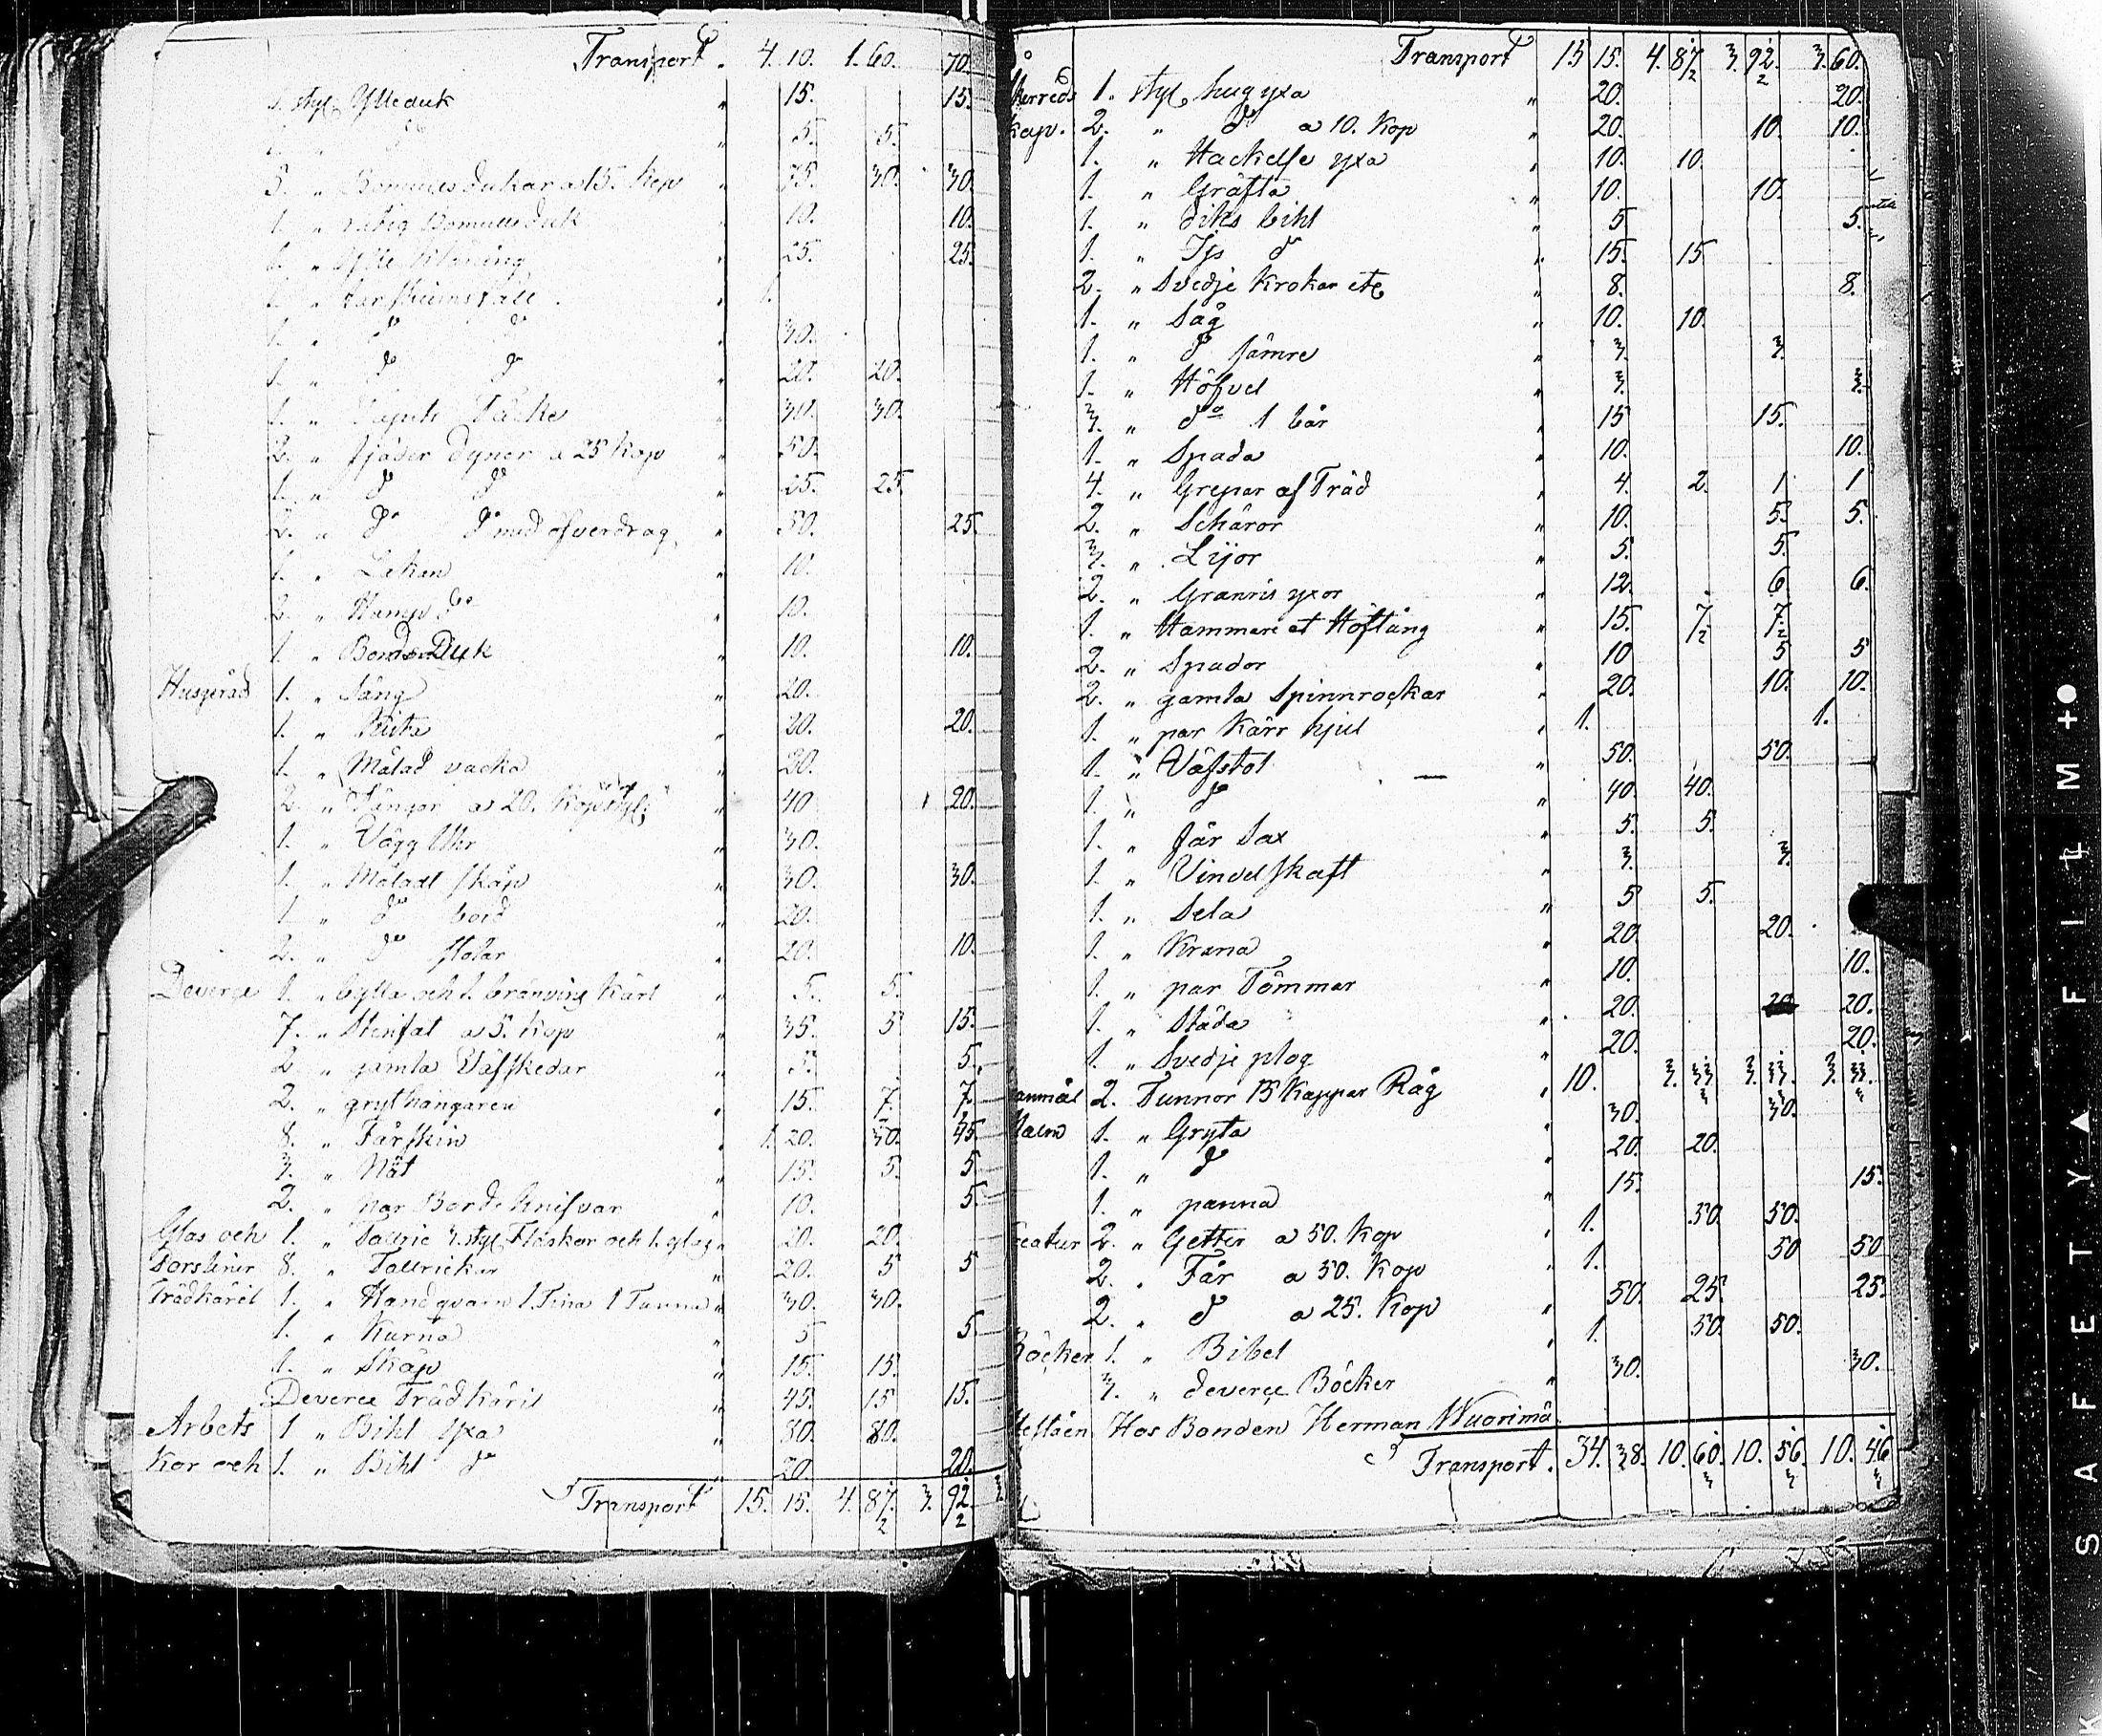 Transport. 4. 10. 1. 60. 70.
1. styc Ylleduk " 15. 15.
1. " d:o " 5. 5.
5. " Bomulls dukar a 15. Kop " 75. 30. 30.
1. " Bomulls duk " 10. 10.
" 25. 25.
" Fårskinnsfäll " 1.
1. " d:o d:o " 30.
1. " d:o d:o " 20. 20.
1. " Täcke " 30. 30.
2. " fjäder dynor a 25 Kop " 50.
1. " d:o d:o " 25. 25.
2. " d:o d:o med öfverdrag " 50. 25.
1. " Lakan " 10.
2. " Hamp d:o " 10.
1. " Bords Duk " 10. 10.
Husgeråd 1. " Säng " 20.
1. " Kista " 20. 20.
1. " Målad vacka " 20.
2. " Sängar a 20. Kop " 40 20.
1. " Vägg Uhr " 30.
1. " Måladt skåp " 30. 30.
1 " d:o bord " 20.
2. " d:o stolar " 20. 10.
Deverse 1. " bylla och 1. bränvins Kärl " 5. 5.
7. " Stenfat a 5. Kop " 35. 5 15.
2 " gamla Väfskedar " 5. 5.
2. " grythängaren " 15. 7. 7.
8. " Fårskin " 1. 20. 30. 45.
3. " Nät " 15. 5. 5
2. " par Bords Knifvar " 10. 5.
Glas och 1. " Tallric 3. styc Flaskor och 1. glas " 20. 20.
Porsliner 8. " Tallrickar " 20. 5 5
Trädkäril 1. " Handqvarn 1. Tina 1 Tunna " 30. 30.
1. " Kurna " 5 5.
1. " Skåp " 15. 15.
Deverse Trädkäril " 45. 15 15.
Arbets 1 " Bihl yxa " 80. 80.
Kor och 1. " Bihl d:o " 20. 20.
Transport 15. 15. 4. 87. 3. 92.
Transport 15 15. 4. 87 3. 92. 3. 60.
1. styc hugyxa " 20. 20.
kap. 2. " d:o a 10. Kop " 20. 10. 10.
1. " Hackelse yxa " 10. 10.
1. " Gräfta " 10. 10.
1. " diks bihl " 5 5.
1. " Iys d:o " 15. 15
2. " Svedje Krokar etc " 8. 8.
1. " Såg " 10. 10.
1. " d:o sämre " 3. 3.
1. " Höfvel " 3. 3.
3. " d:o 1 bår " 15 15.
1. " Spada " 10. 10.
4. " Grepar af Träd " 4. 2. 1. 1
2. " Schäror " 10. 5. 5.
3. " Lijor " 5. 5.
2. " Granris yxor " 12. 6. 6.
1. " Hammare et Hoftång " 15. 7 7
2. " Spador " 10 5 5
2. " gamla Spinnrockar " 20. 10. 10.
1. " par Kärr hjul " 1. 1.
1. " Väfstol " 50. 50.
1. " d:o " 40. 40.
1. " får Sax " 5. 5.
1. " Vinvelskaft " 3. 3.
1. " Sela " 5 5.
1. " Krana " 20. 20.
1. " par Tömmar " 10. 10.
1. " Släda " 20. 20.
1. " Svedje plog " 20. 20.
2. Tunnor 15 Kappar Råg " 10. 3. 33 3. 33. 3. 33.
1. " Gryta " 30. 30.
1. " d:o " 20. 20.
1. " panna " 15. 15.
2. " Getter a 50. Kop " 1. 50. 50.
2. " Får a 50. Kop " 1. 50 50
2. " d:o a 25. Kop " 50. 25. 25.
Böcker 1. " Bibel " 1. 50. 50.
3. " deverse Böcker " 30. 30.
Hos Bonden Herman Wuorimä
Transport. 34. 38. 10. 60. 10. 56. 10. 46
SAFETY▲FILM